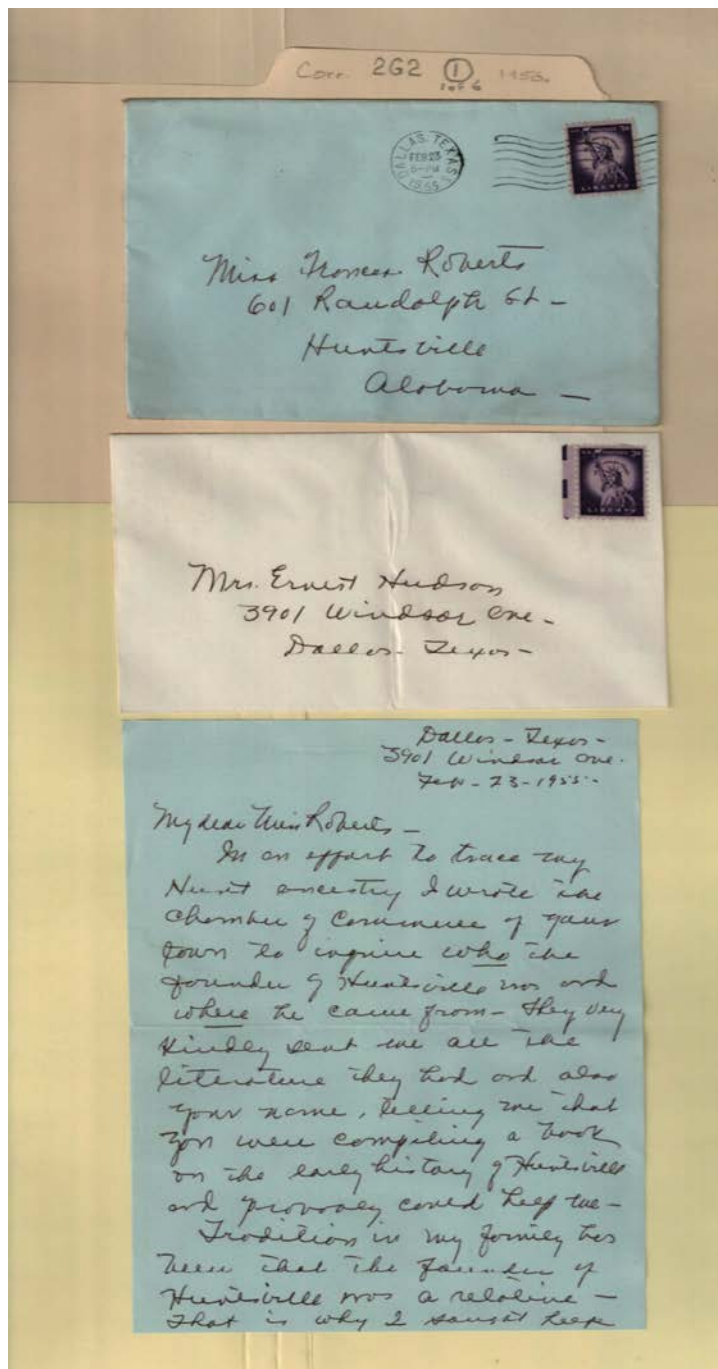 Corr. 2G2 1 1955
1 of 6
DALLAS, TEXAS
FEB 23
6-PM
1955
LIBERTY
Miss Frances Roberts
601 Randolph St -
Huntsville
Alabama -
LIBERTY
Mrs. Ernest Hudson
3901 Windsor Ave -
Dallas - Texas -
Dallas - Texas -
3901 Windsor Ave -
Feb - 23 - 1955 -
My dear Miss Roberts -
In an effort to trace my
Hunt ancestry I wrote the
Chamber of Commerce of your
town to inquire who the
founder of Huntsville was and
where he came from - They very
kindly sent me all the
literature they had and also
your name, telling me that
you were compiling a book
on the early history of Huntsville
and probably could help me -
Tradition in my family has
been that the founder of
Huntsville was a relative -
That is why I sought help